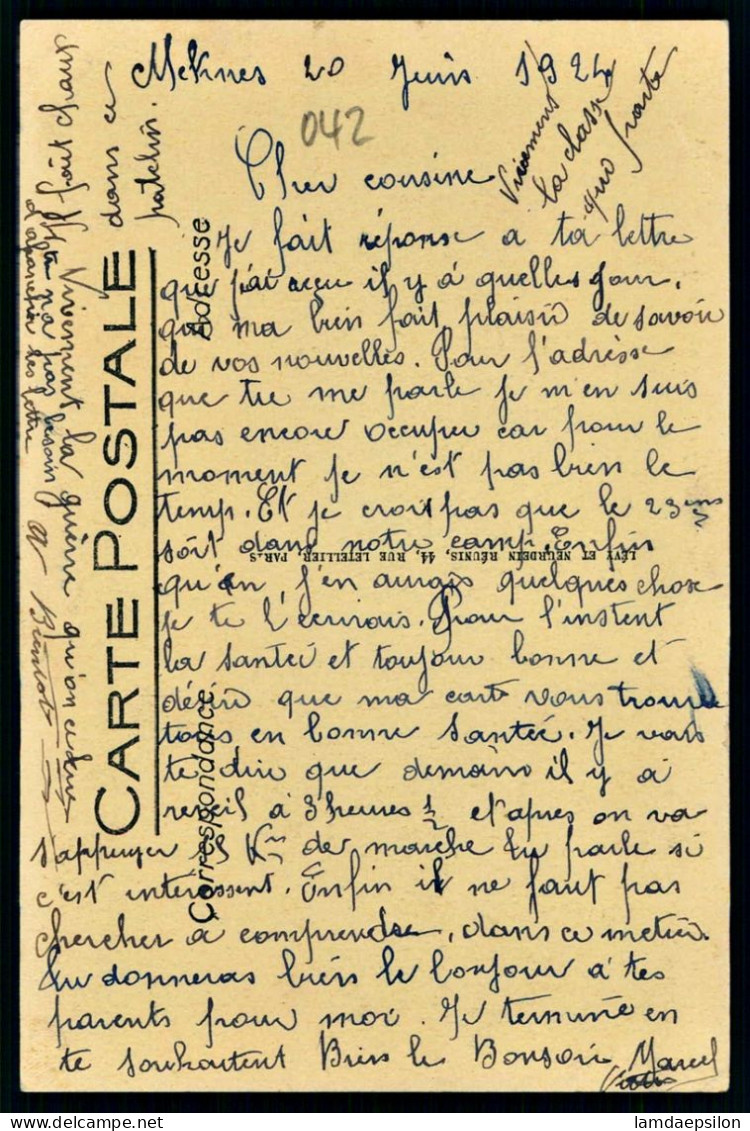 Meknes 20 Juin 1924
042
Vivement
la classe
que parte
Cher cousine
Je fait réponse a ta lettre
que j'ai reçu il y á quelles jour.
qui ma bien fait plaisir de savoir
de vos nouvelles. Pour l'adrèsse
que tu me parle je m'en suis
pas encore occuper car pour le
moment je n'est pas bien le
temp. Et je croit pas que le 23ème
soit dans notre camp. Enfin
qu'en, j'en aurais quelques chose
je te l'écrirais. Pour l'instent
la santeé et toujour bonne et
désire que ma carte vous trouve
tous en bonne santeé. Je vais
te dire que demain il y á
reveil á 3 heures 1/2 et apres on va
s'appuyer Km de marche tu parle si
c'est intéressent. Enfin il ne faut pas
chercher a comprendre, dans ce metier.
Tu donneras bien le bonjour á tes
parents pour moi. Je termine en
te souhaitent Bien le Bonsoir Marcel
fait chaud
dans ce
patelin.
Vivement la guèrre qu'on
na pas besoin
d'afranchir les lettre
a Bientot
CARTE POSTALE
Correspondance
Adresse
LÉVY ET NEURDEIN RÉUNIS, 44, RUE LETELLIER, PARIS
© delcampe.net
lamdaepsilon